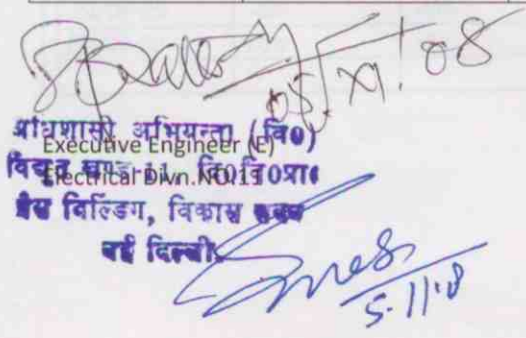 05/XI/08
अधिशासी अभियन्ता (वि०)
Executive Engineer (E)
विद्युत खण्ड-11, दि०वि०प्रा०
Electrical Divn.NO.11
बेस विल्डिंग, विकास सदन
नई दिल्ली